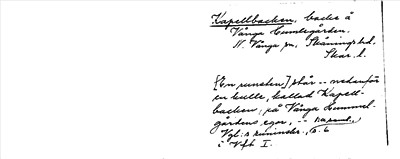 Kapellbacken, backe å
Vånga Humlegården.
N. Vånga sn, Skånings hd.
Skar. l.
[En runsten] står -- nedanför
en kulle, kallad Kapell-
backen, på Vånga Hummel-
gårdens egor, --
Vgl:s runinskr., s. 6
i Vft I.